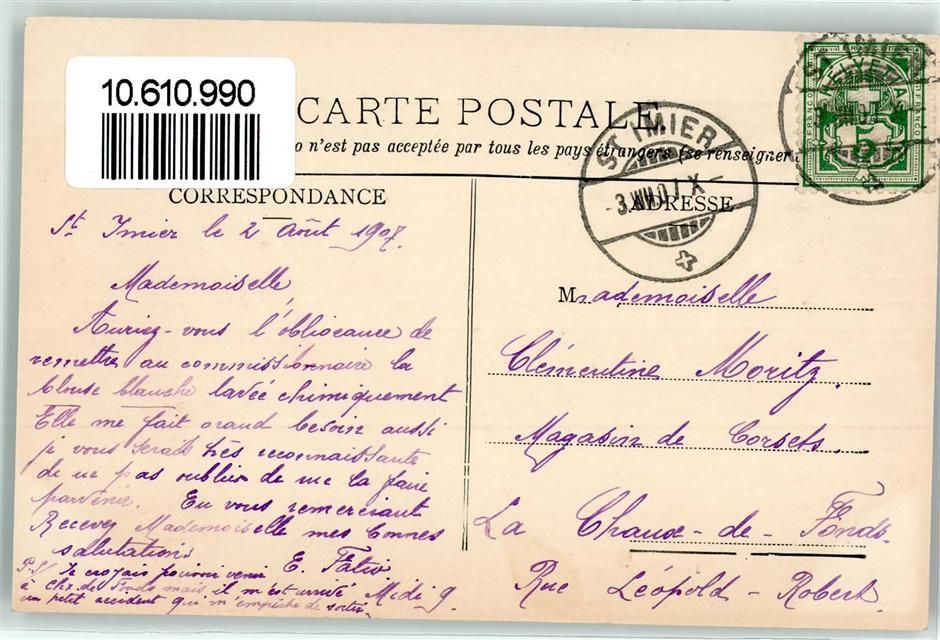 10.610.990
CARTE POSTALE
o n'est pas acceptée par tous les pays étrangers (se renseigner
CORRESPONDANCE
ADRESSE
ST IMIER
3.VIII.07.X-
ST IMIER
HELVETIA
FRANCO
5
St Imier le 2 Août 1907.
Mademoiselle
Auriez-vous l'obligeance de
remettre au commissionnaire la
blouse blanche lavée chimiquement
Elle me fait grand besoin aussi
je vous serais très reconnaissante
de ne pas oublier de me la faire
parvenir. En vous remerciant
Recevez Mademoiselle mes bonnes
salutations
E. Fatio
Midi 9.
P.S. Je croyais pouvoir venir
à Chx de Fonds mais il m'est arrivé
un petit accident qui m'empêche de sortir.
Mademoiselle
Clémentine Moritz.
Magasin de Corsets.
La Chaux-de-Fonds.
Rue Léopold-Robert.